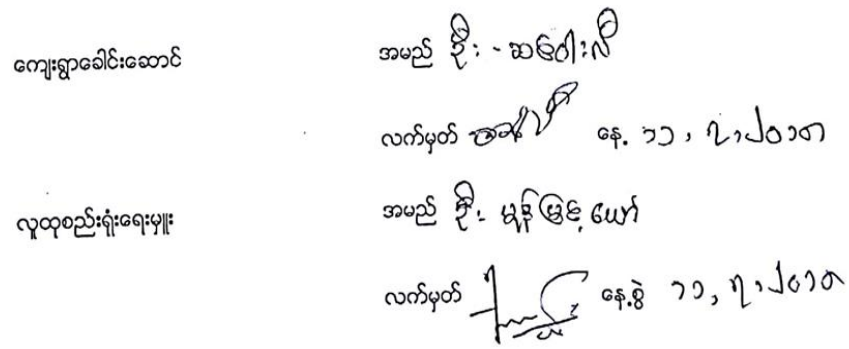 ကျေးရွာခေါင်းဆောင် အမည် ဦး - ဆဝေါးလီ
လက်မှတ် နေ့ ၁၁, ၇, ၂၀၁၈
လူထုစည်းရုံးရေးမှူး အမည် ဦး မွန်မြင့်ယော်
လက်မှတ် နေ့စွဲ ၁၁, ၇, ၂၀၁၈